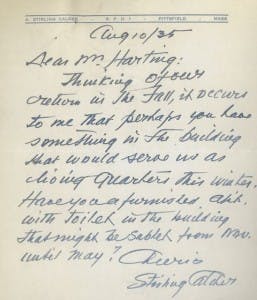 A. STIRLING CALDER - R. F. D. 1 - PITTSFIELD - MASS
Aug 10/35
Dear Mr Harting:
Thinking of our
return in the Fall, it occurs
to me that perhaps you have
something in the building
that would serve us as
living quarters this winter.
Have you a furnished apt.
with toilet in the building
that might be sublet from Nov.
until May? Cheerio
Stirling Calder